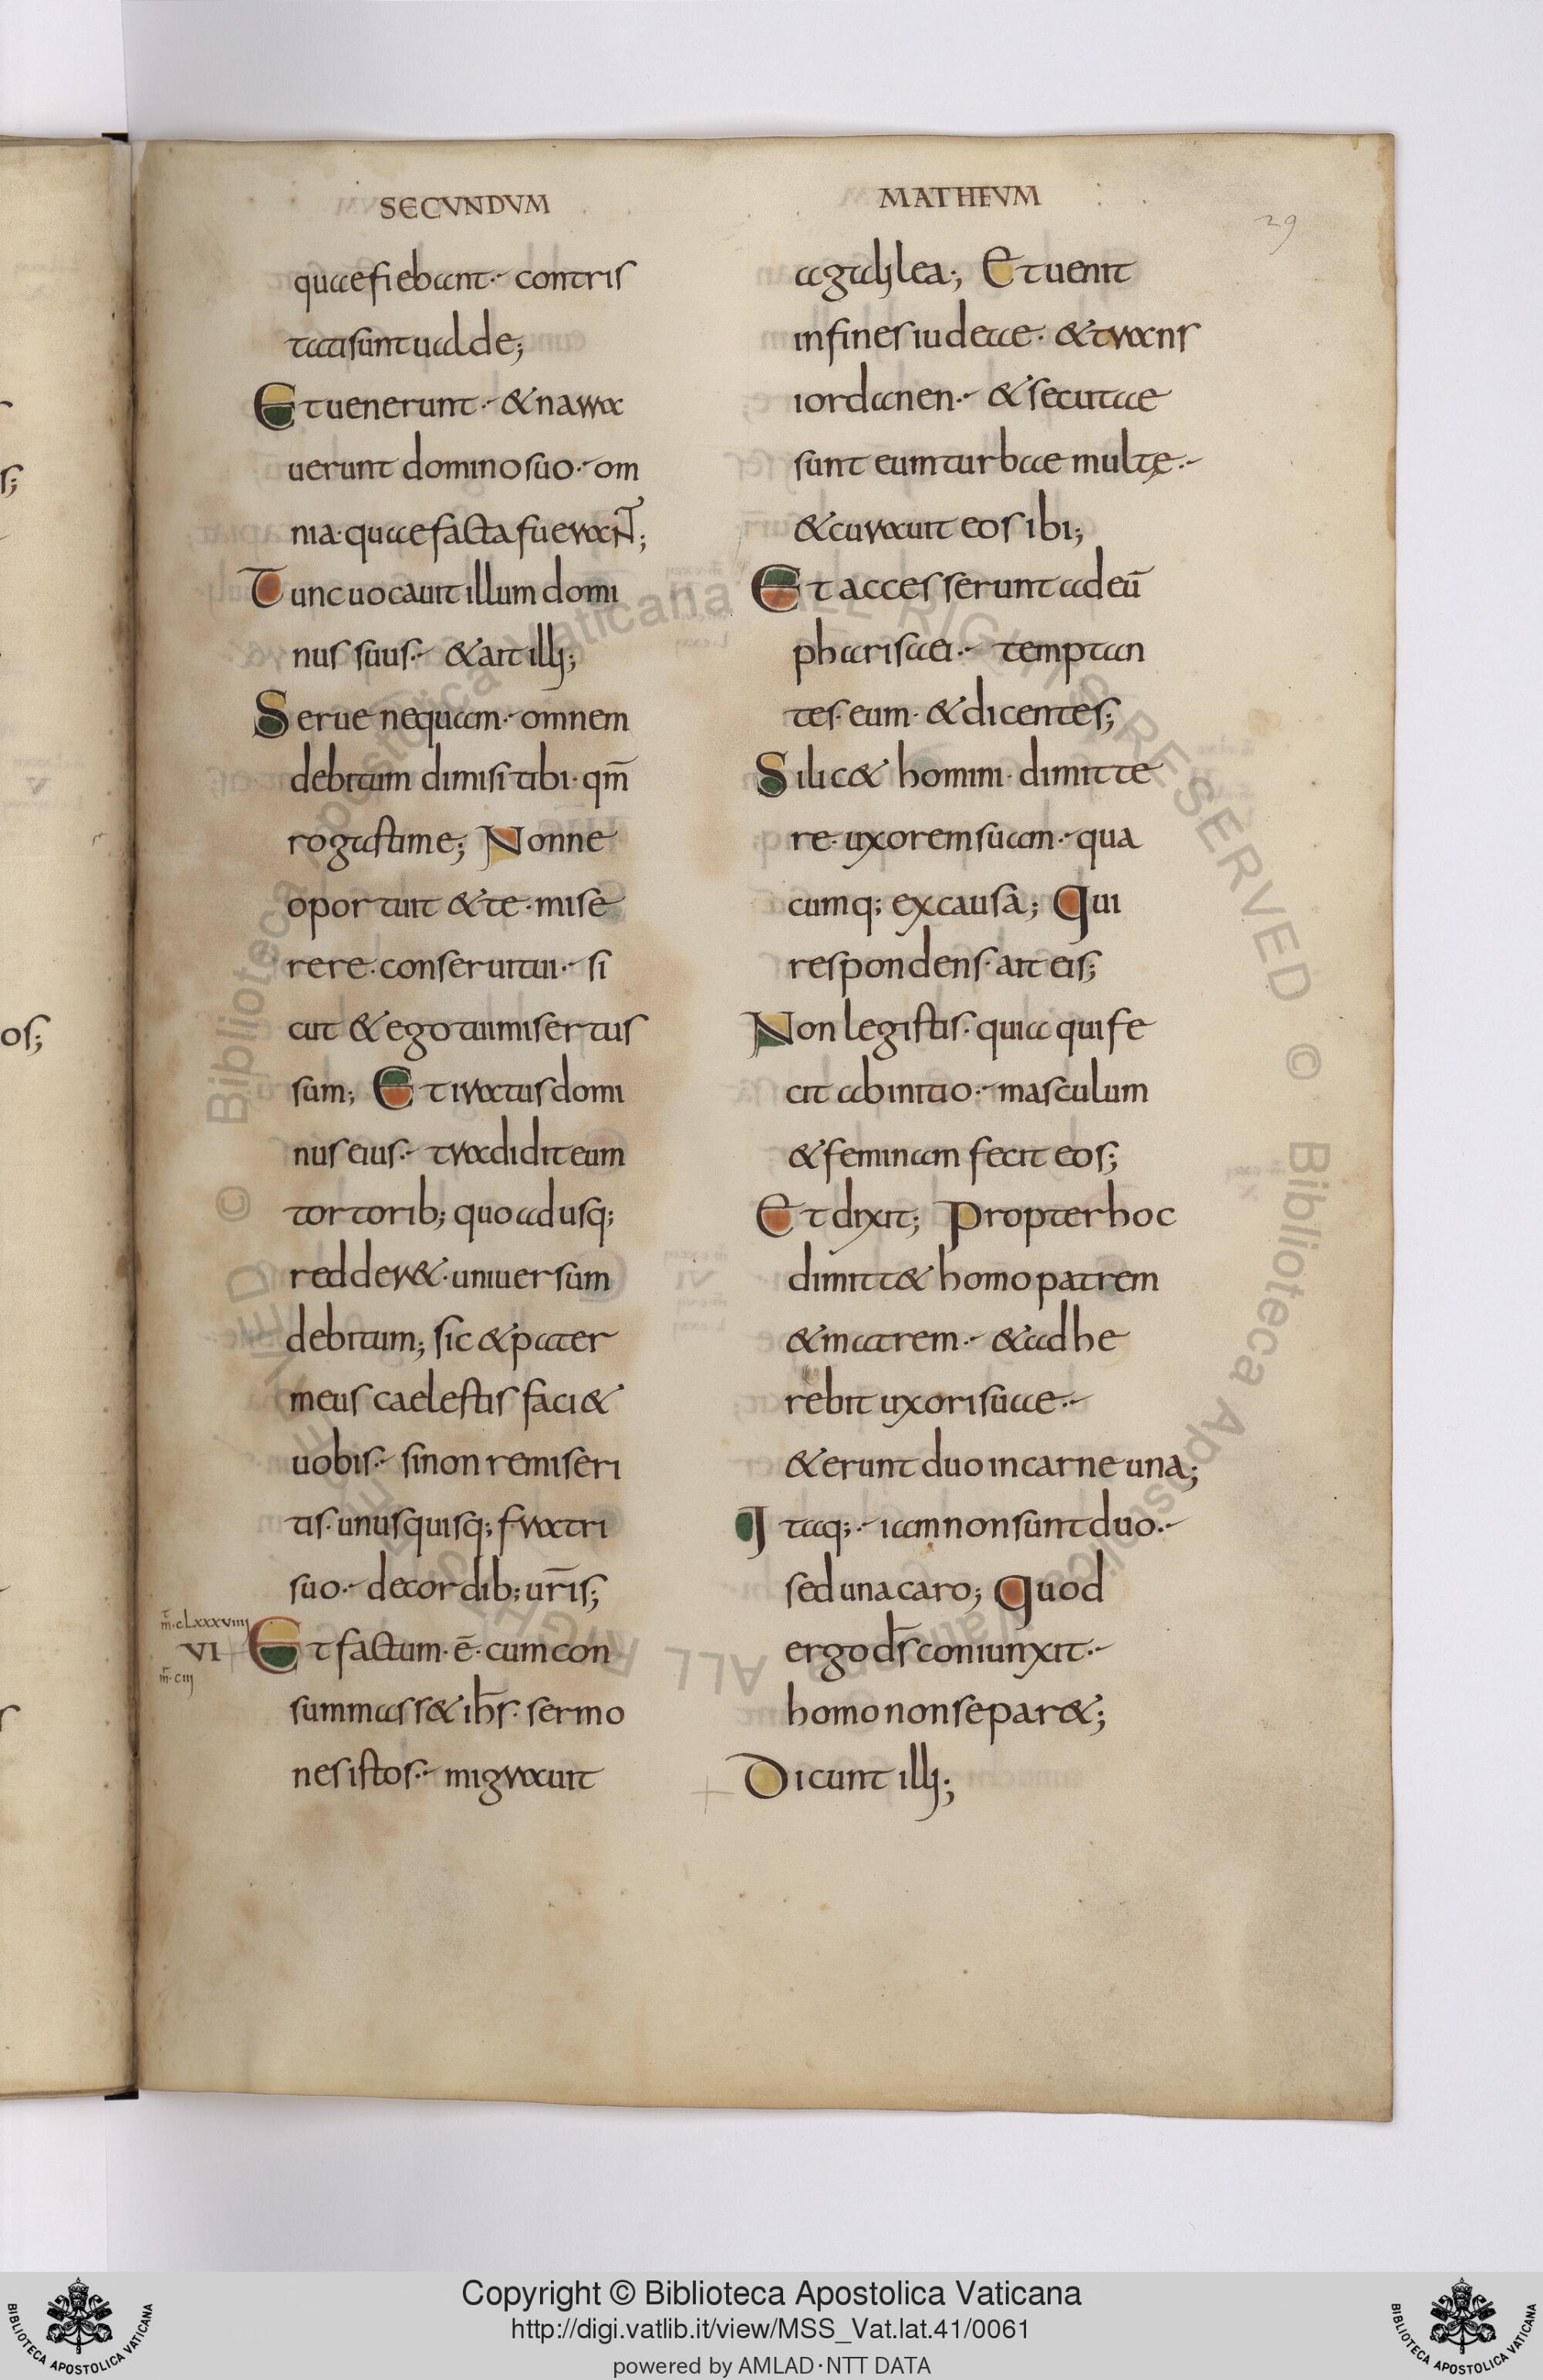 SECVNDVM
quaefiebant· contris
tatisuntualde;
Etuenerunt· &narra
uerunt dominosuo· om
nia· quaefactafueraNT;
Tuncuocauit illumdomi
nussuus· &aitilli;
Serue nequam· omnem
debitum dimisi tibi· qm̄
rogastime; Nonne
oportuit &te· mise
rere· conseruitui· si
cut &ego tuimisertus
sum; Et iratusdomi
nuseius· tradiditeum
tortorib; quoadusq;
redder&· uniuersum
debitum; sic &pater
meus caelestis faci&
uobis· sinonremiseri
tis· unusquisq; fratri
suo· decordib; ur̄is;
m̄·cLxxxviiii
VI
m̄·ciij
Etfactum· ē· cumcon
summass& ih̄s· sermo
nesistos· migrauit
MATHEVM
29
agalilea; Etuenit
infinesiudeae· &trans
iordanen· &secutae
sunt eumturbae multę·
&curauit eosibi;
Et accesseruntadeū
pharisaei· temptan
tes· eum· &dicentes;
Silic& homini· dimitte
re· uxoremsuam· qua
cumq; excausa; Qui
respondens· ait eis;
Nonlegistis· quia quife
cit abinitio· masculum
&feminam fecit eos;
Etdixit; Propterhoc
dimitt& homopatrem
&matrem· &adhe
rebit uxorisuae·
&erunt duoincarne una;
Itaq;· iamnonsuntduo·
sedunacaro; Quod
ergo ds̄ coniunxit·
homononsepar&;
Dicunt illi;
© Biblioteca Apostolica Vaticana ALL RIGHTS RESERVED © Biblioteca Apostolica Vaticana ALL RIGHTS RESERVED
Copyright © Biblioteca Apostolica Vaticana
http://digi.vatlib.it/view/MSS_Vat.lat.41/0061
powered by AMLAD·NTT DATA
BIBLIOTECA APOSTOLICA VATICANA
BIBLIOTECA APOSTOLICA VATICANA